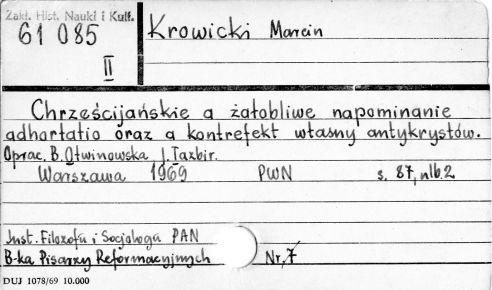 Zakł. Hist. Nauki i Kult.
61 085
II
Krowicki Marcin
Chrześcijańskie a żałobliwe napominanie
adhortatio oraz a kontrefekt własny antykrystów.
Oprac. B. Otwinowska, J. Tazbir.
Warszawa 1969 PWN s. 87, nlb. 2
Inst. Filozofa i Socjologa PAN
B-ka Pisarzy Reformacyjnych Nr. 7
DUJ 1078/69 10.000